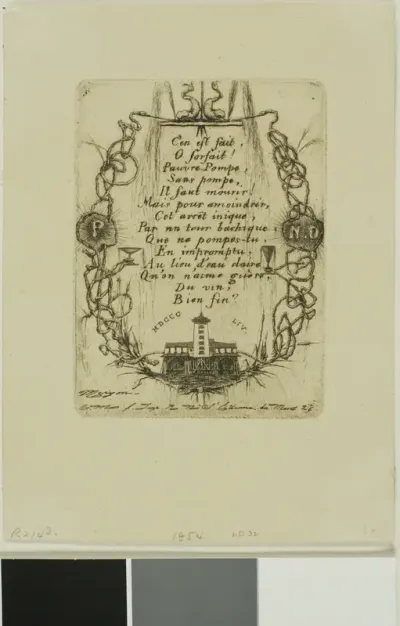 C'en est fait,
O forfait!
Pauvre Pompe,
Sans pompe,
Il faut mourir!
Mais pour amoindrir,
Cet arrêt inique,
Par un tour bachique,
P
N D
Que ne pompes-tu,
En impromptu,
Au lieu d'eau claire,
Qu'on n'aime guère,
Du vin,
Bien fin?
MDCCC LIV.
1854